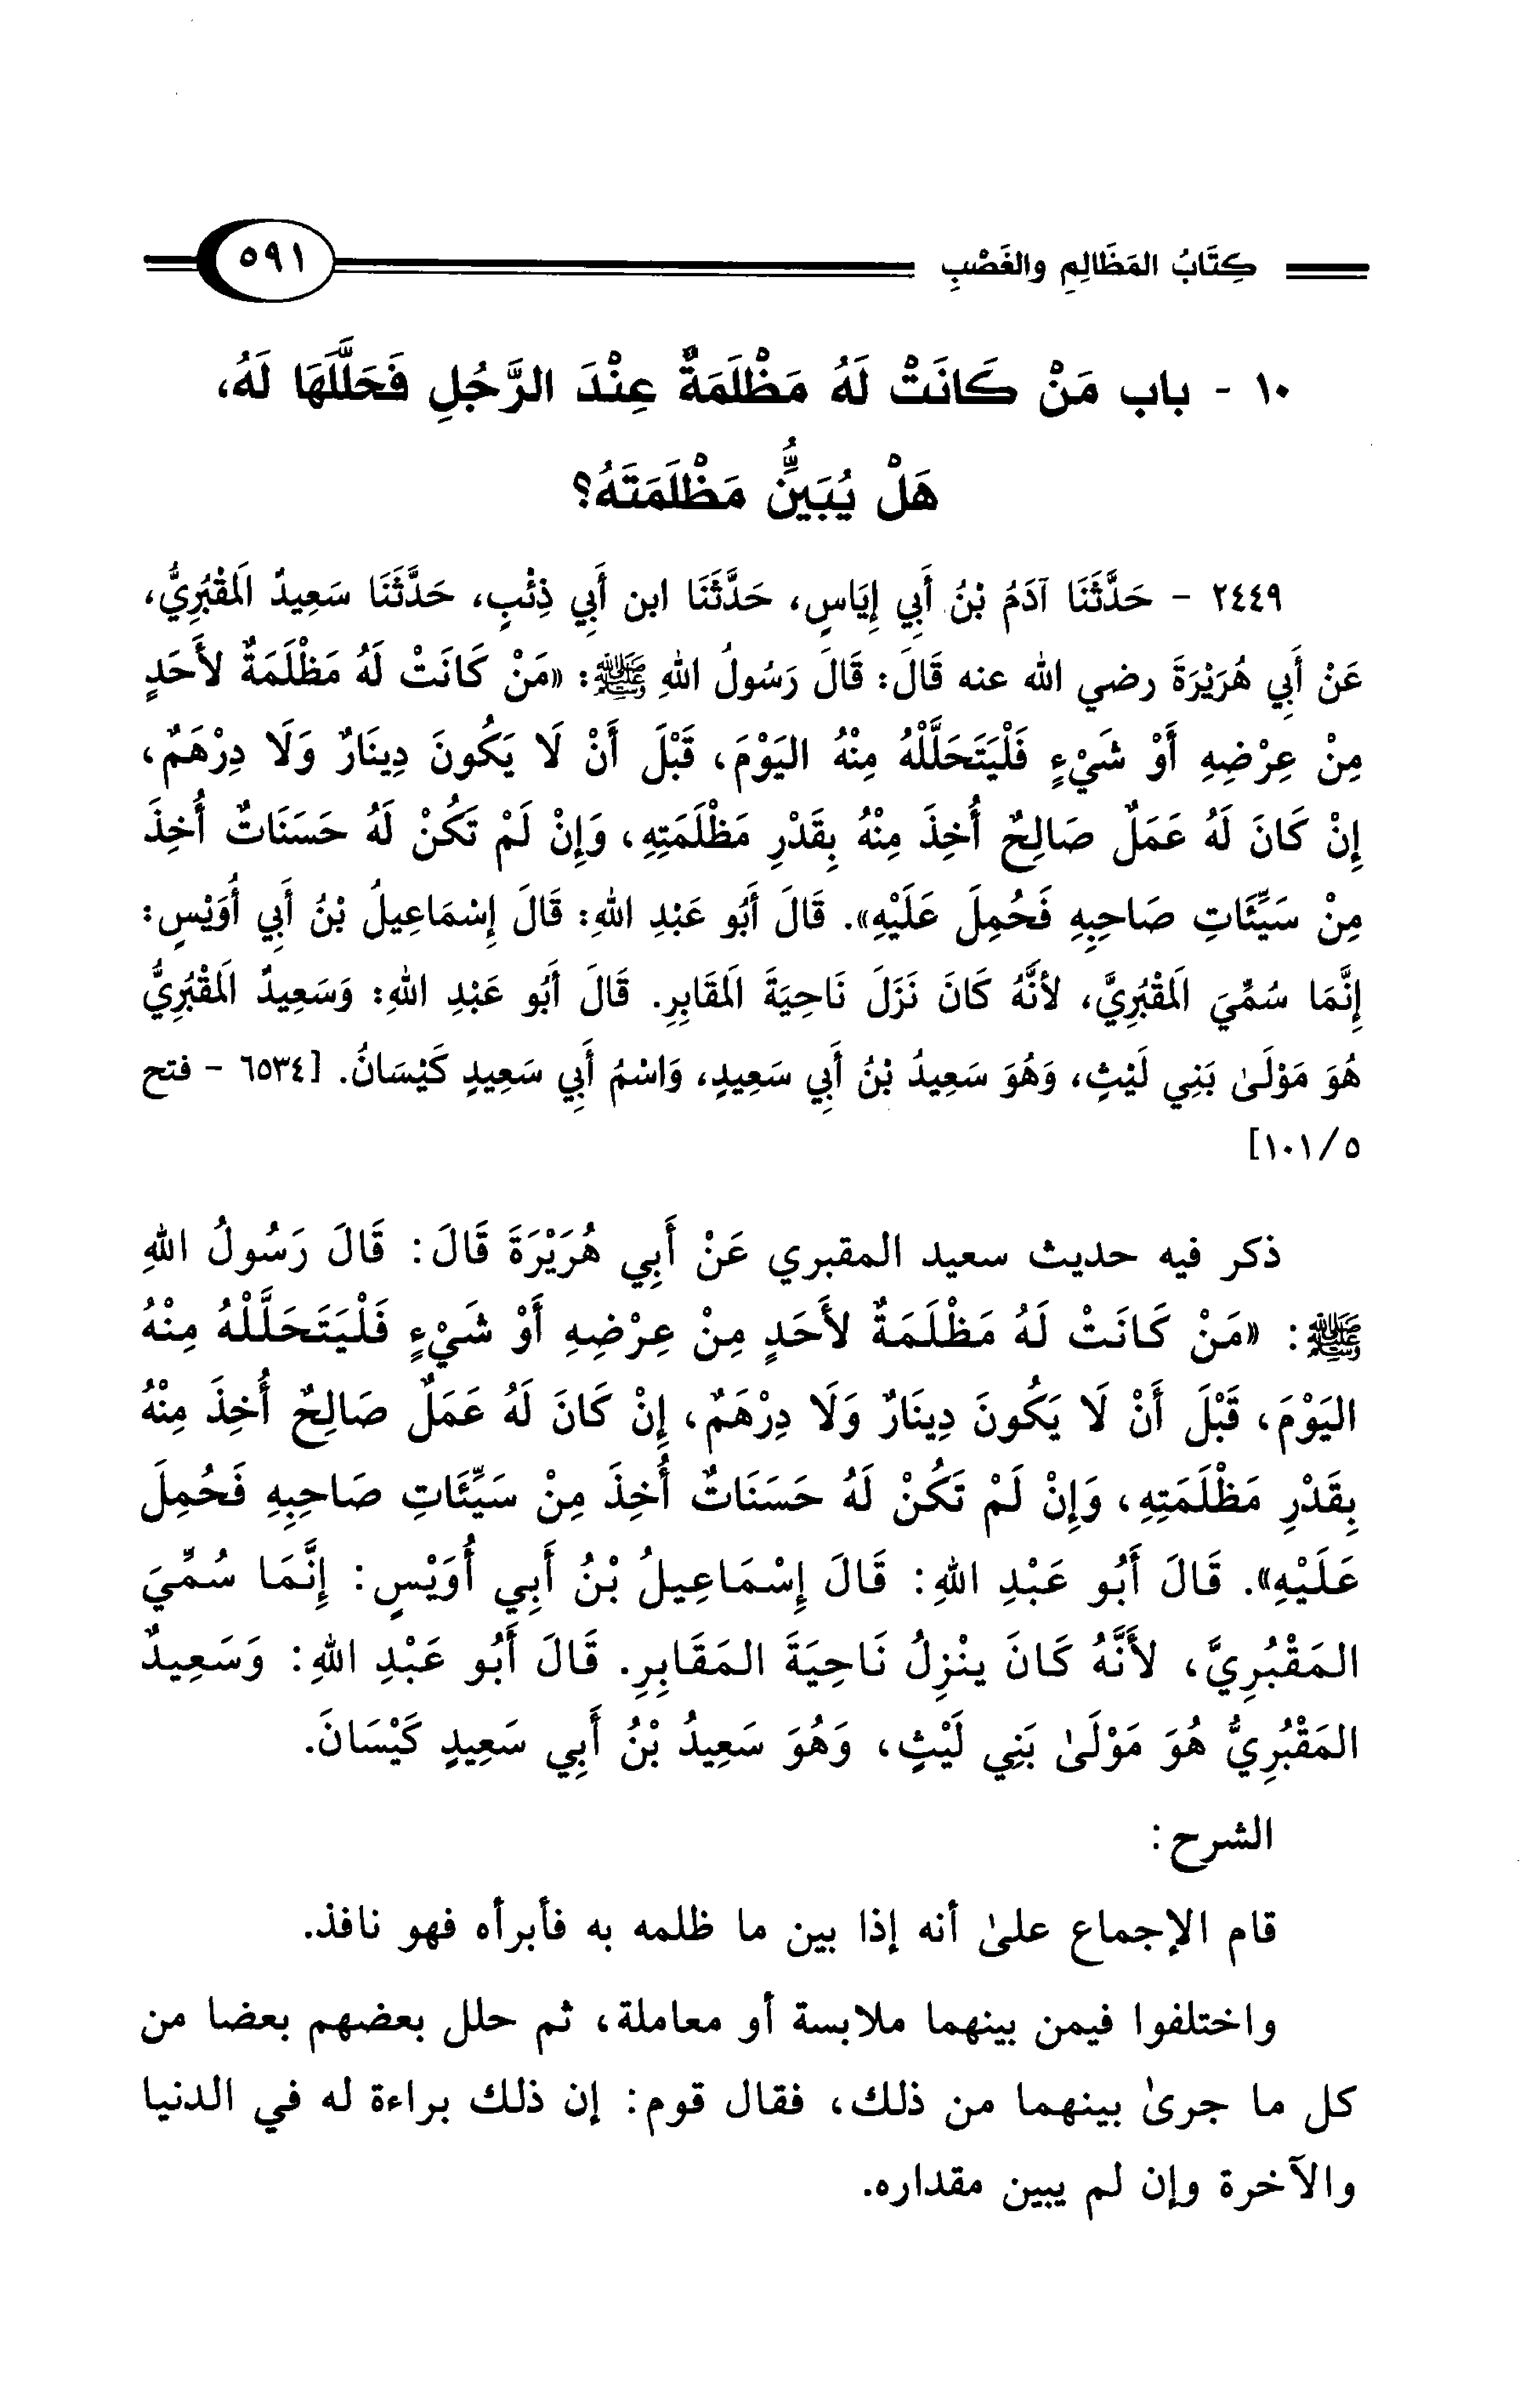 كِتَابُ المَظَالِمِ والغَصْبِ ٥٩١
١٠ - باب مَنْ كَانَتْ لَهُ مَظْلَمَةٌ عِنْدَ الرَّجُلِ فَحَلَّلَهَا لَهُ،
هَلْ يُبَيِّنُ مَظْلَمَتَهُ؟
٢٤٤٩ - حَدَّثَنَا آدَمُ بْنُ أَبِي إِيَاسٍ، حَدَّثَنَا ابن أَبِي ذِئْبٍ، حَدَّثَنَا سَعِيدٌ المَقْبُرِيُّ،
عَنْ أَبِي هُرَيْرَةَ رضي الله عنه قَالَ: قَالَ رَسُولُ اللهِ ﷺ: «مَنْ كَانَتْ لَهُ مَظْلَمَةٌ لأَحَدٍ
مِنْ عِرْضِهِ أَوْ شَيْءٍ فَلْيَتَحَلَّلْهُ مِنْهُ اليَوْمَ، قَبْلَ أَنْ لَا يَكُونَ دِينَارٌ وَلَا دِرْهَمٌ،
إِنْ كَانَ لَهُ عَمَلٌ صَالِحٌ أُخِذَ مِنْهُ بِقَدْرِ مَظْلَمَتِهِ، وَإِنْ لَمْ تَكُنْ لَهُ حَسَنَاتٌ أُخِذَ
مِنْ سَيِّئَاتِ صَاحِبِهِ فَحُمِلَ عَلَيْهِ». قَالَ أَبُو عَبْدِ اللهِ: قَالَ إِسْمَاعِيلُ بْنُ أَبِي أُوَيْسٍ:
إِنَّمَا سُمِّيَ المَقْبُرِيَّ، لأَنَّهُ كَانَ نَزَلَ نَاحِيَةَ المَقَابِرِ. قَالَ أَبُو عَبْدِ اللهِ: وَسَعِيدٌ المَقْبُرِيُّ
هُوَ مَوْلَىٰ بَنِي لَيْثٍ، وَهُوَ سَعِيدُ بْنُ أَبِي سَعِيدٍ، وَاسْمُ أَبِي سَعِيدٍ كَيْسَانُ. [٦٥٣٤ - فتح
٥/١٠١]
ذكر فيه حديث سعيد المقبري عَنْ أَبِي هُرَيْرَةَ قَالَ: قَالَ رَسُولُ اللهِ
ﷺ: «مَنْ كَانَتْ لَهُ مَظْلَمَةٌ لأَحَدٍ مِنْ عِرْضِهِ أَوْ شَيْءٍ فَلْيَتَحَلَّلْهُ مِنْهُ
اليَوْمَ، قَبْلَ أَنْ لَا يَكُونَ دِينَارٌ وَلَا دِرْهَمٌ، إِنْ كَانَ لَهُ عَمَلٌ صَالِحٌ أُخِذَ مِنْهُ
بِقَدْرِ مَظْلَمَتِهِ، وَإِنْ لَمْ تَكُنْ لَهُ حَسَنَاتٌ أُخِذَ مِنْ سَيِّئَاتِ صَاحِبِهِ فَحُمِلَ
عَلَيْهِ». قَالَ أَبُو عَبْدِ اللهِ: قَالَ إِسْمَاعِيلُ بْنُ أَبِي أُوَيْسٍ: إِنَّمَا سُمِّيَ
المَقْبُرِيَّ، لأَنَّهُ كَانَ ينْزِلُ نَاحِيَةَ المَقَابِرِ. قَالَ أَبُو عَبْدِ اللهِ: وَسَعِيدٌ
المَقْبُرِيُّ هُوَ مَوْلَىٰ بَنِي لَيْثٍ، وَهُوَ سَعِيدُ بْنُ أَبِي سَعِيدٍ كَيْسَانَ.
الشرح:
قام الإجماع علىٰ أنه إذا بين ما ظلمه به فأبرأه فهو نافذ.
واختلفوا فيمن بينهما ملابسة أو معاملة، ثم حلل بعضهم بعضا من
كل ما جرىٰ بينهما من ذلك، فقال قوم: إن ذلك براءة له في الدنيا
والآخرة وإن لم يبين مقداره.